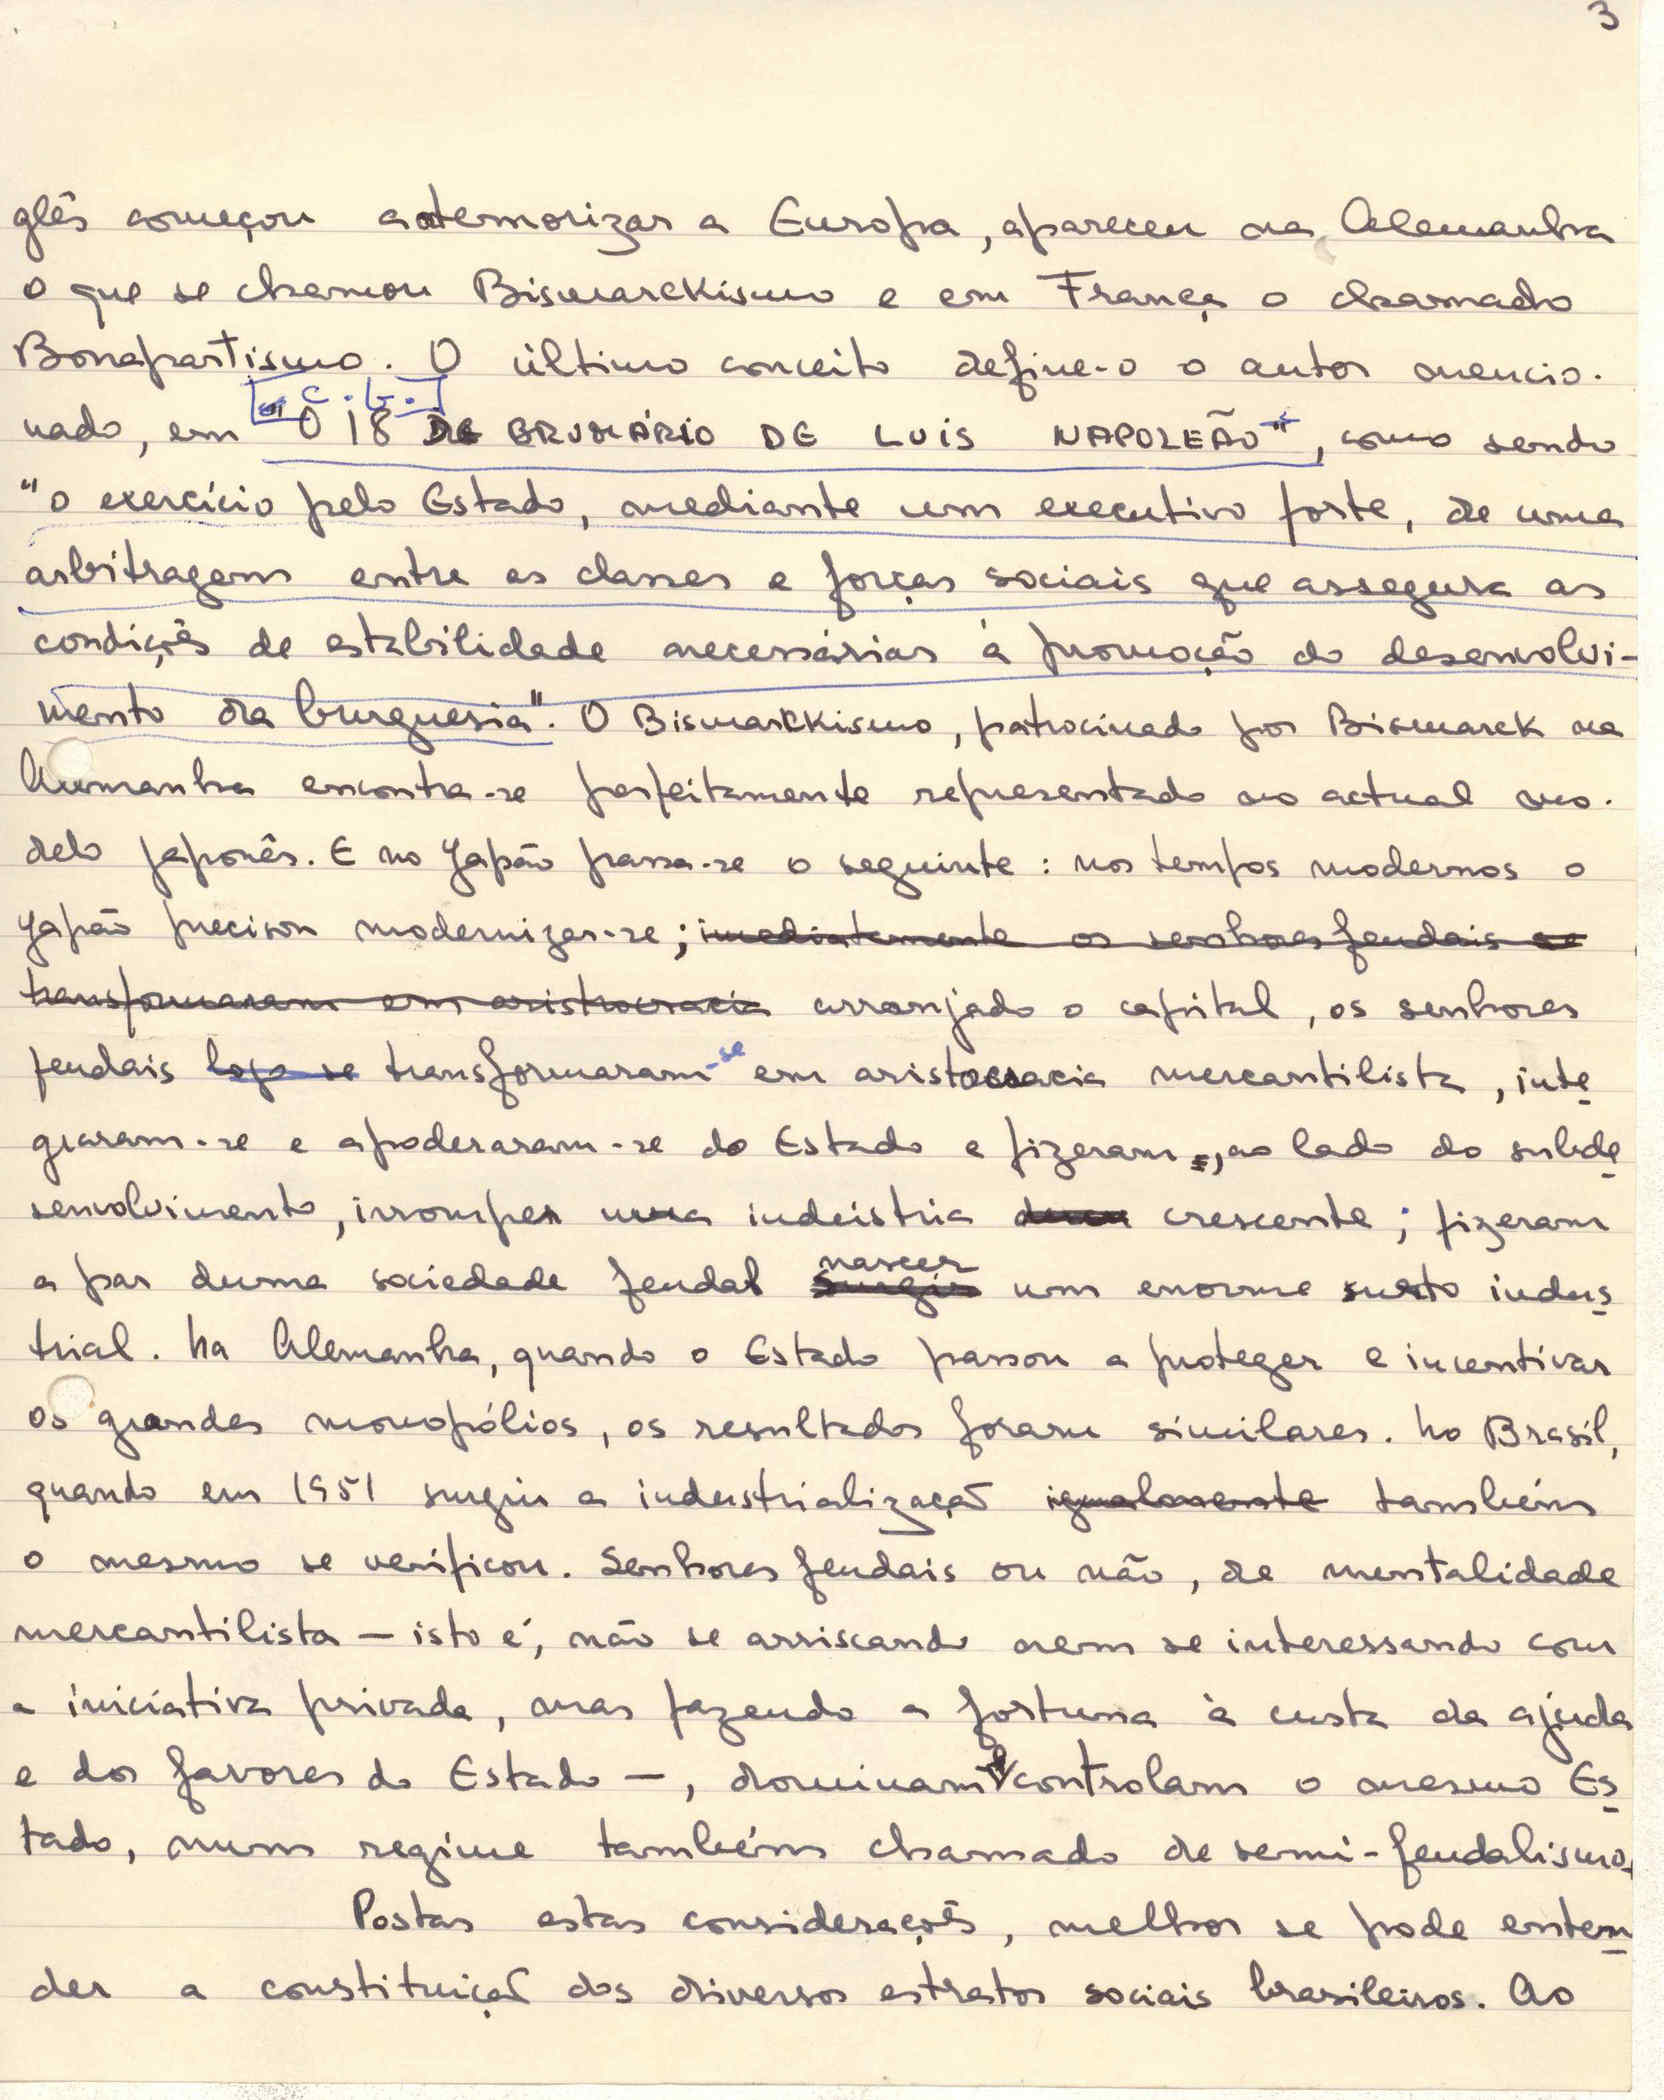 3
glês começou a atemorizar a Europa, apareceu na Alemanha
o que se chamou Bismarckismo e em França o chamado
Bonapartismo. O último conceito define-o o autor mencio-
nado, em "O 18 DE BRUMÁRIO DE LUIS NAPOLEÃO", como sendo
"o exercício pelo Estado, mediante um executivo forte, de uma
arbitragem entre as classes e forças sociais que assegura as
condições de estabilidade necessárias à promoção do desenvolvi-
mento da burguesia". O Bismarckismo, patrocinado por Bismarck na
Alemanha encontra-se perfeitamente representado no actual mo-
delo japonês. E no Japão passa-se o seguinte: nos tempos modernos o
Japão precisou modernizar-se; imediatamente os senhores feudais se
transformaram em aristocracia arranjado o capital, os senhores
feudais logo se transformaram-se em aristocracia mercantilista, inte
graram-se e apoderaram-se do Estado e fizeram, ao lado do subde
senvolvimento, irromper uma indústria crescente; fizeram
nascer
a par duma sociedade feudal surgir um enorme surto indus
trial. Na Alemanha, quando o Estado passou a proteger e incentivar
os grandes monopólios, os resultados foram similares. No Brasil,
quando em 1951 surgiu a industrialização igualmente também
o mesmo se verificou. Senhores feudais ou não, de mentalidade
mercantilista — isto é, não se arriscando nem se interessando com
a iniciativa privada, mas fazendo a fortuna à custa da ajuda
e dos favores do Estado —, dominam e controlam o mesmo Es
tado, num regime também chamado de semi-feudalismo.
Postas estas considerações, melhor se pode enten
der a constituição dos diversos estratos sociais brasileiros. Ao